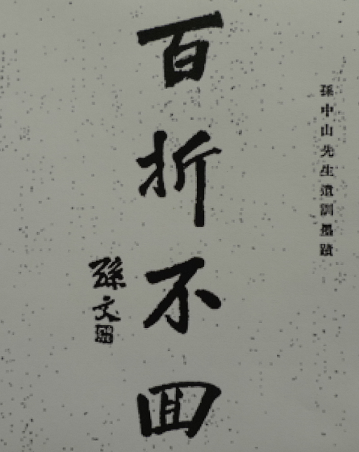 孫中山先生遺訓墨蹟
百折不回
孫文